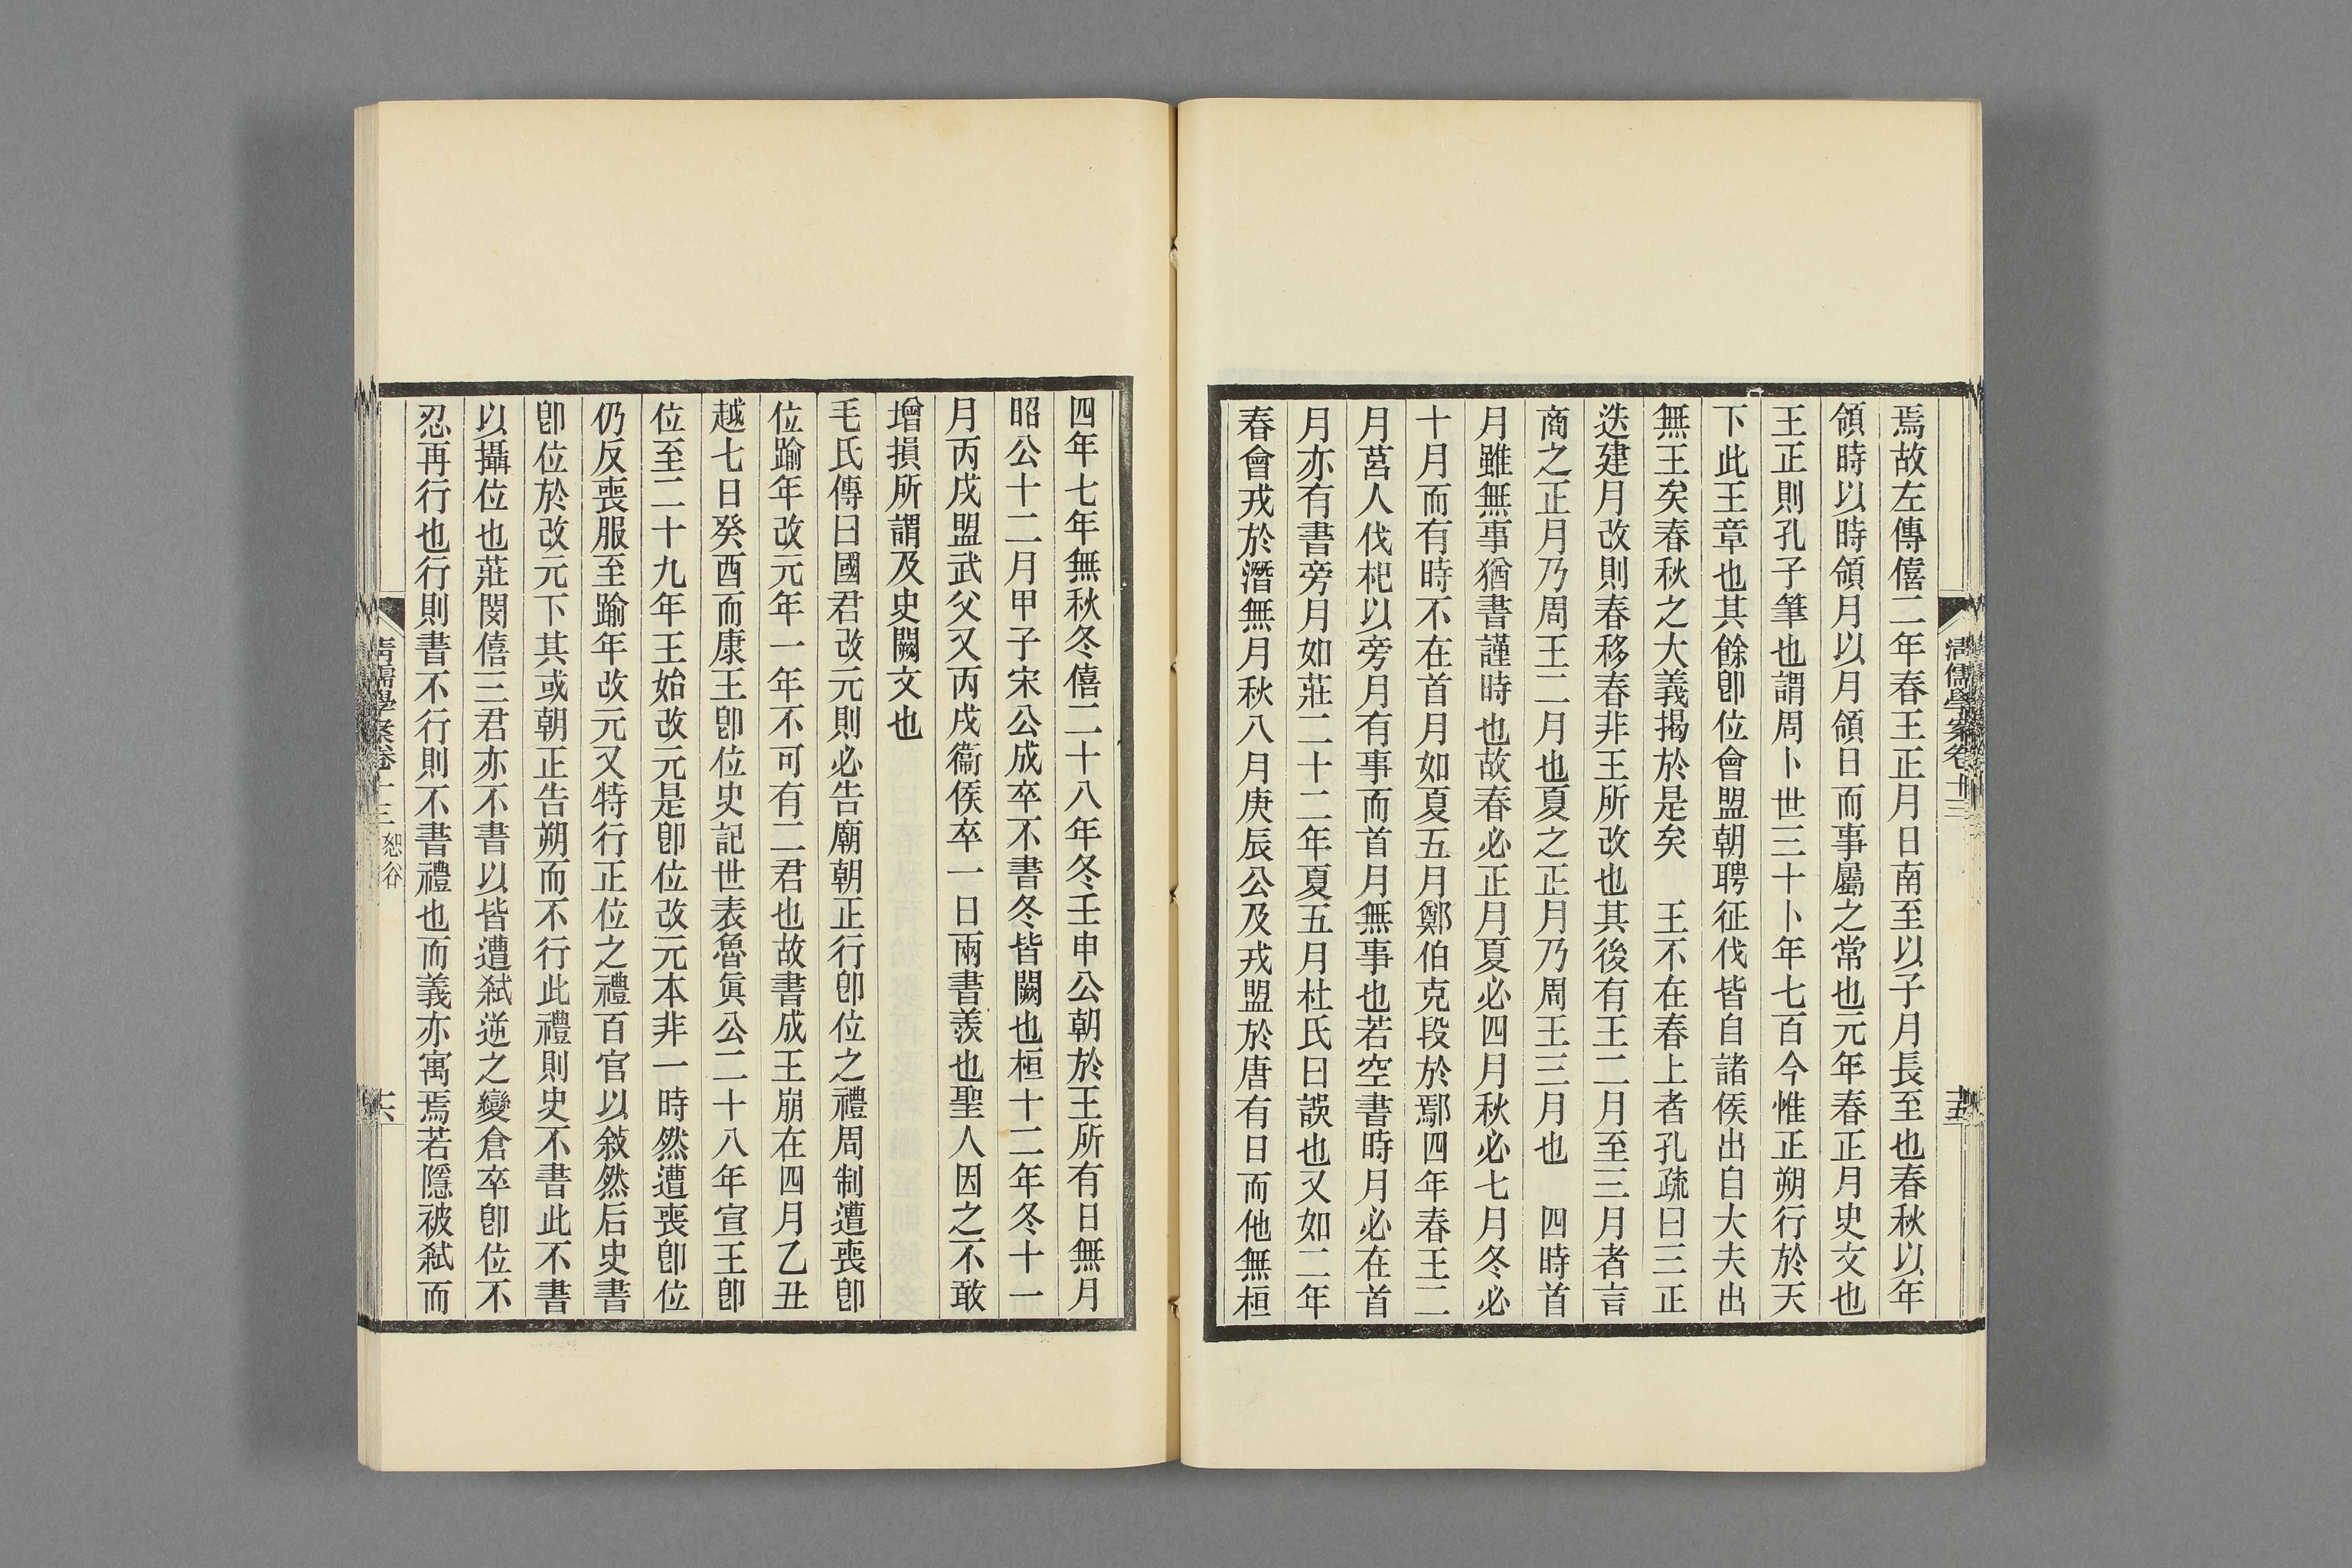 清儒學案卷十三
十五
焉故左傳僖二年春王正月日南至以子月長至也春秋以年
領時以時領月以月領日而事屬之常也元年春正月史文也
王正則孔子筆也謂周卜世三十卜年七百今惟正朔行於天
下此王章也其餘卽位會盟朝聘征伐皆自諸侯出自大夫出
無王矣春秋之大義揭於是矣　王不在春上者孔疏曰三正
迭建月改則春移春非王所改也其後有王二月至三月者言
商之正月乃周王二月也夏之正月乃周王三月也　四時首
月雖無事猶書謹時也故春必正月夏必四月秋必七月冬必
十月而有時不在首月如夏五月鄭伯克段於鄢四年春王二
月莒人伐杞以旁月有事而首月無事也若空書時月必在首
月亦有書旁月如莊二十二年夏五月杜氏曰誤也又如二年
春會戎於潛無月秋八月庚辰公及戎盟於唐有日而他無桓
四年七年無秋冬僖二十八年冬壬申公朝於王所有日無月
昭公十二月甲子宋公成卒不書冬皆闕也桓十二年冬十一
月丙戌盟武父又丙戌衞侯卒一日兩書羨也聖人因之不敢
增損所謂及史闕文也
毛氏傳曰國君改元則必告廟朝正行卽位之禮周制遭喪卽
位踰年改元年一年不可有二君也故書成王崩在四月乙丑
越七日癸酉而康王卽位史記世表魯眞公二十八年宣王卽
位至二十九年王始改元是卽位改元本非一時然遭喪卽位
仍反喪服至踰年改元又特行正位之禮百官以敍然后史書
卽位於改元下其或朝正告朔而不行此禮則史不書此不書
以攝位也莊閔僖三君亦不書以皆遭弒逆之變倉卒卽位不
忍再行也行則書不行則不書禮也而義亦寓焉若隱被弒而
清儒學案卷十三　恕谷
十六